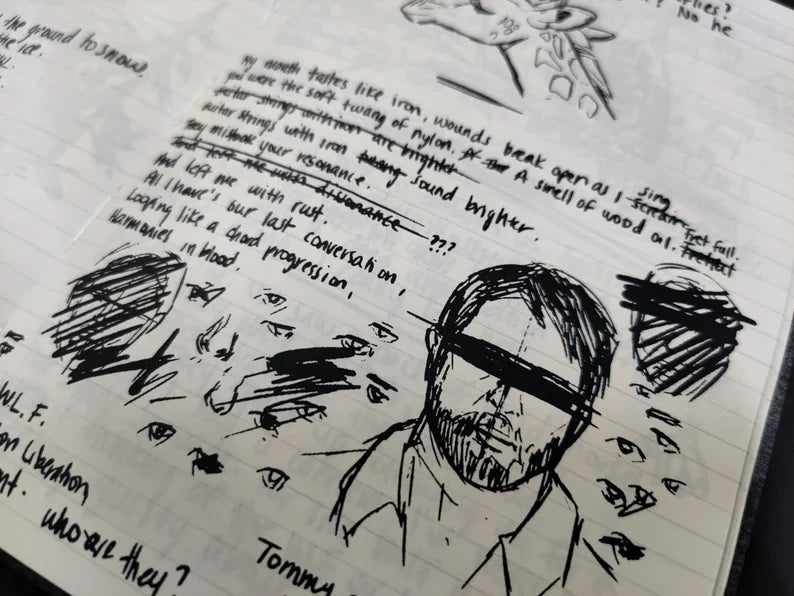 flies?
? No he
the ground to snow.
the ice.
My mouth tastes like iron, wounds break open as I scream sing.
You were the soft twang of nylon. A smell of wood oil. Fret full.
Guitar strings with iron are brighter
Guitar strings with iron twang sound brighter.
They mistook your resonance.
And left me with dissonance ???
And left me with rust.
All I have's our last conversation,
Looping like a chord progression,
Harmonies in blood.
WL.F.
on Liberation
nt.
who are they?
Tommy